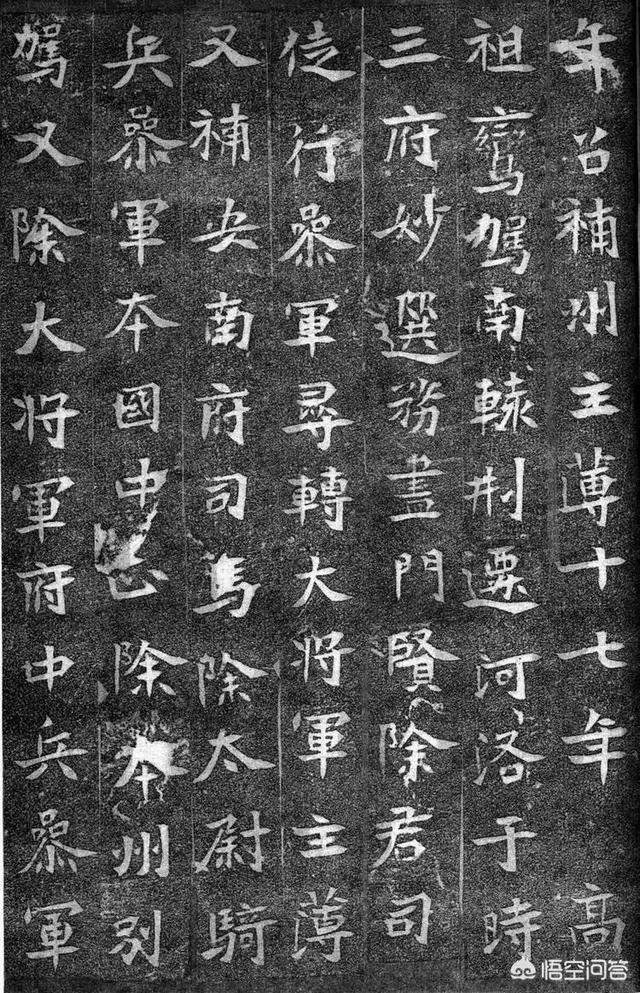 年召補州主薄十七年 高
祖鸞駕南轅創遷河洛于時
三府妙選務盡門賢除君司
徒行參軍尋轉大將軍主薄
又補央南府司馬除太尉騎
兵參軍本國中正除本州別
駕又除大將軍府中兵參軍
悟空问答